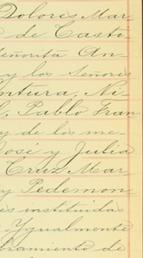 Dolores Mar
o de Casti
Señorita An
y los Señores
entura, Ni
l, Pablo Fran
y de los me
José y Julia
Cruz Mar
y Pedemon
és instituida
Igualmente
bramiento de